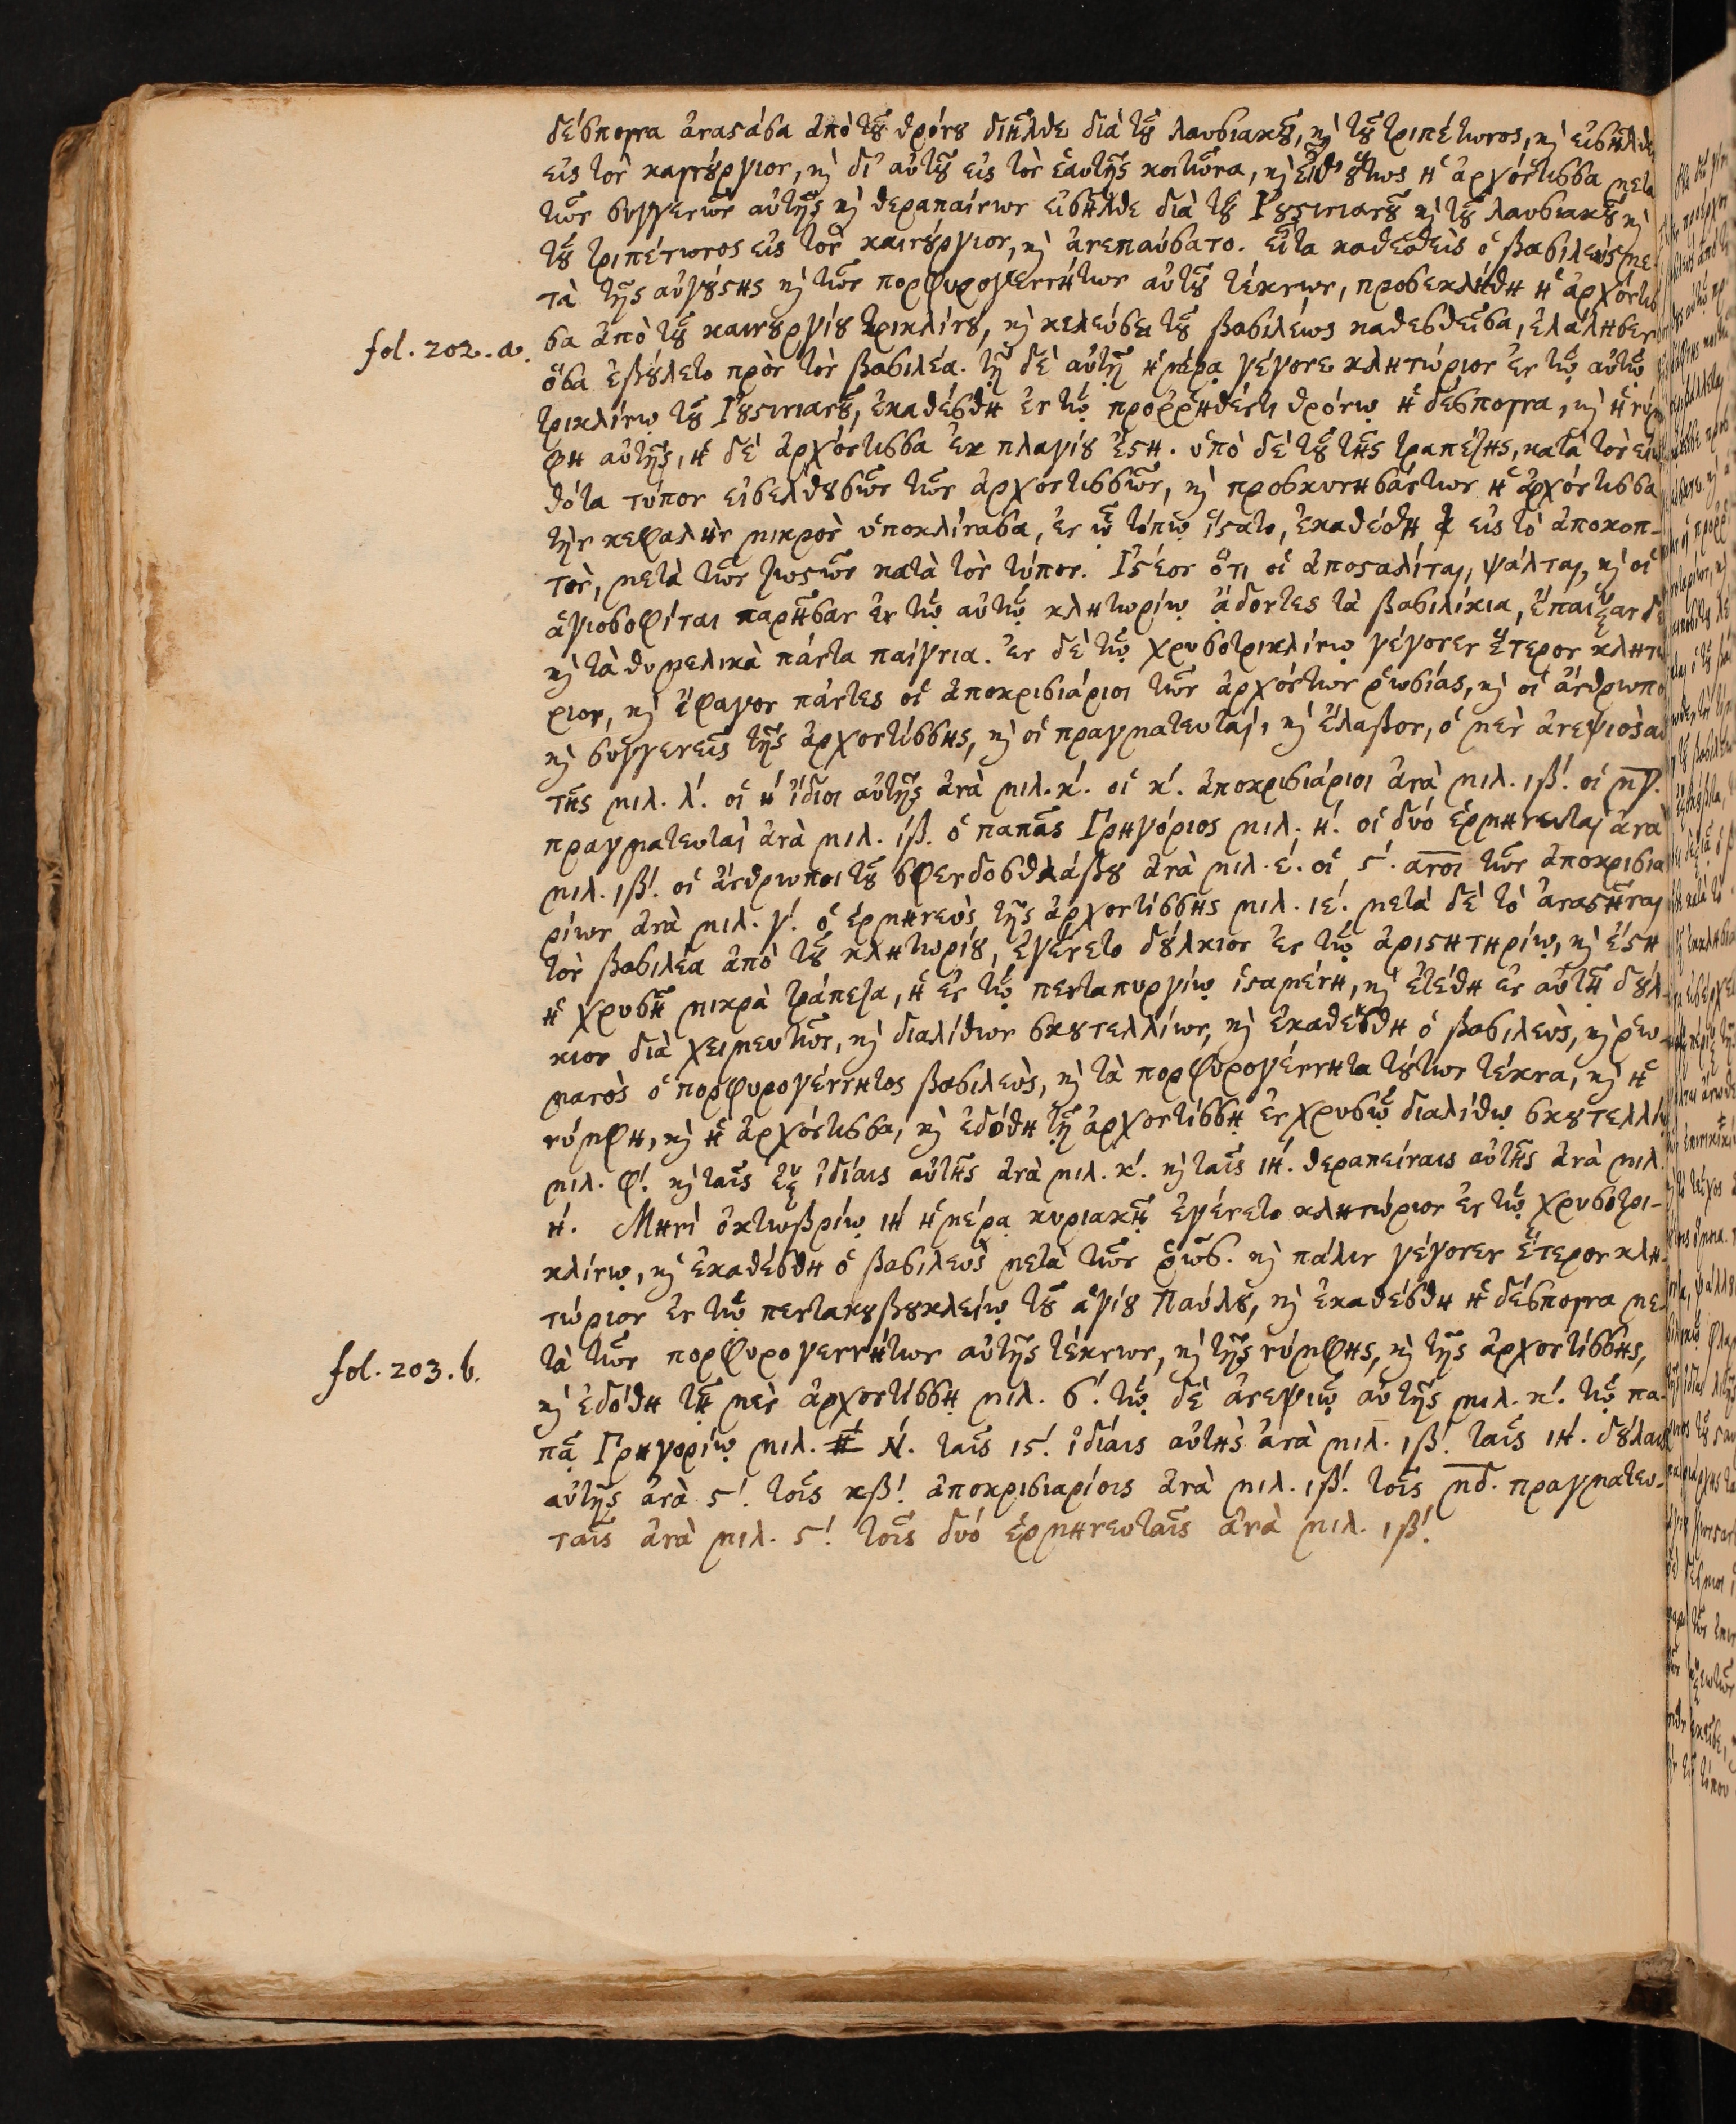 δέσποινα ἀναστᾶσα ἀπὸ τοῦ θρόνου διῆλθε διὰ τοῦ λαυσιακοῦ, καὶ τοῦ τριπέτωνος, καὶ εἰσῆλθε
εἰς τὸν καινούργιον, καὶ δι' αὐτοῦ εἰς τὸν ἑαυτῆς κοιτῶνα, καὶ εἶθ' οὕτως ἡ ἀρχόντισσα μετὰ
τῶν συγγενῶν αὐτῆς καὶ θεραπαίνων εἰσῆλθε διὰ τοῦ Ἰουστινιανοῦ καὶ τοῦ λαυσιακοῦ καὶ
τοῦ τριπέτωνος εἰς τὸν καινούργιον, καὶ ἀνεπαύσατο. εἶτα καθεσθεὶς ὁ βασιλεὺς με-
τὰ τῆς αὐγούστης καὶ τῶν πορφυρογεννήτων αὐτοῦ τέκνων, προσεκλήθη ἡ ἀρχόντισ
fol. 202. a. σα ἀπὸ τοῦ καινουργίου τρικλίνου, καὶ κελεύσει τοῦ βασιλέως καθεσθεῖσα, ἐλάλησεν
ὅσα ἐβούλετο πρὸς τὸν βασιλέα. τῇ δὲ αὐτῇ ἡμέρᾳ γέγονε κλητώριον ἐν τῷ αὐτῷ
τρικλίνῳ τοῦ Ἰουστινιανοῦ, ἐκαθέσθη ἐν τῷ προῤῥηθέντι θρόνῳ ἡ δέσποινα, καὶ ἡ νύμ
φη αὐτῆς, ἡ δὲ ἀρχόντισσα ἐκ πλαγίου ἔστη. ὑπὸ δὲ τοῦ τῆς τραπέζης, κατὰ τὸν εἰω
θότα τύπον εἰσελθουσῶν τῶν ἀρχοντισσῶν, καὶ προσκυνησάντων ἡ ἀρχόντισσα
τὴν κεφαλὴν μικρὸν ὑποκλίνασα, ἐν ᾧ τόπῳ ἵστατο, ἐκαθέσθη εἰς τὸ ἀποκοπ-
τὸν, μετὰ τῶν ζωστῶν κατὰ τὸν τύπον. Ἰστέον ὅτι οἱ ἀποσαλίται, ψάλται, καὶ οἱ
ἁγιοσοφίται παρῆσαν ἐν τῷ αὐτῷ κλητωρίῳ ᾄδοντες τὰ βασιλίκια, ἔπαιξαν δὲ
καὶ τὰ θυμελικὰ πάντα παίγνια. ἐν δὲ τῷ χρυσοτρικλίνῳ γέγονεν ἕτερον κλητώ
ριον, καὶ ἔφαγον πάντες οἱ ἀποκρισιάριοι τῶν ἀρχόντων ῥωσίας, καὶ οἱ ἄνθρωποι
καὶ συγγενεῖς τῆς ἀρχοντίσσης, καὶ οἱ πραγματευταί, καὶ ἔλαβον, ὁ μὲν ἀνεψιὸς αὐ
τῆς μιλ. λ΄. οἱ η΄ ἴδιοι αὐτῆς ἀνὰ μιλ. κ΄. οἱ κ΄. ἀποκρισιάριοι ἀνὰ μιλ. ιβ΄. οἱ μγ.
πραγματευταὶ ἀνὰ μιλ. ιβ. ὁ παπᾶς Γρηγόριος μιλ. η΄. οἱ δυό ἑρμηνευταὶ ἀνὰ
μιλ. ιβ΄. οἱ ἄνθρωποι τοῦ σφενδοσθλάβου ἀνὰ μιλ. ε΄. οἱ ϛ΄. ανοι τῶν ἀποκρισια
ρίων ἀνὰ μιλ. γ΄. ὁ ἑρμηνεὺς τῆς ἀρχοντίσσης μιλ. ιε΄. μετὰ δὲ τὸ ἀναστῆναι
τὸν βασιλέα ἀπὸ τοῦ κλητωρίου, ἐγένετο δούλκιον ἐν τῷ ἀριστητηρίῳ, καὶ ἔστη
ἡ χρυσῆ μικρὰ τράπεζα, ἡ ἐν τῷ πενταπυργίῳ ἱσταμένη, καὶ ἐτέθη ἐν αὐτῇ δούλ-
κιον διὰ χειμευτῶν, καὶ διαλίθων σκουτελλίων, καὶ ἐκαθέσθη ὁ βασιλεὺς, καὶ ῥω-
μανὸς ὁ πορφυρογέννητος βασιλεὺς, καὶ τὰ πορφυρογέννητα τούτων τέκνα, καὶ ἡ
νύμφη, καὶ ἡ ἀρχόντισσα, καὶ ἐδόθη τῇ ἀρχοντίσσῃ ἐν χρυσῷ διαλίθῳ σκουτελλίῳ
μιλ. φ΄. καὶ ταῖς ἓξ ἰδίαις αὐτῆς ἀνὰ μιλ. κ΄. καὶ ταῖς ιη΄. θεραπαίναις αὐτῆς ἀνὰ μιλ.
η΄. Μηνὶ ὀκτωβρίῳ ιη΄ ἡμέρᾳ κυριακῇ ἐγένετο κλητώριον ἐν τῷ χρυσοτρι-
κλίνῳ, καὶ ἐκαθέσθη ὁ βασιλεὺς μετὰ τῶν ῥῶς. καὶ πάλιν γέγονεν ἕτερον κλη-
τώριον ἐν τῷ πεντακουβουκλείῳ τοῦ ἁγίου Παύλου, καὶ ἐκαθέσθη ἡ δέσποινα με-
fol. 203. b. τὰ τῶν πορφυρογεννήτων αὐτῆς τέκνων, καὶ τῆς νύμφης, καὶ τῆς ἀρχοντίσσης,
καὶ ἐδόθη τῇ μὲν ἀρχοντίσσῃ μιλ. σ΄. τῷ δὲ ἀνεψιῷ αὐτῆς μιλ. κ΄. τῷ πα-
πᾷ Γρηγορίῳ μιλ. η΄. ταῖς ιϛ΄. ἰδίαις αὐτῆς ἀνὰ μιλ. ιβ΄. ταῖς ιη΄. δούλαις
αὐτῆς ἀνὰ ϛ΄. τοῖς κβ΄. ἀποκρισιαρίοις ἀνὰ μιλ. ιβ΄. τοῖς μδ. πραγματευ-
ταῖς ἀνὰ μιλ. ϛ΄. τοῖς δυό ἑρμηνευταῖς ἀνὰ μιλ. ιβ΄.